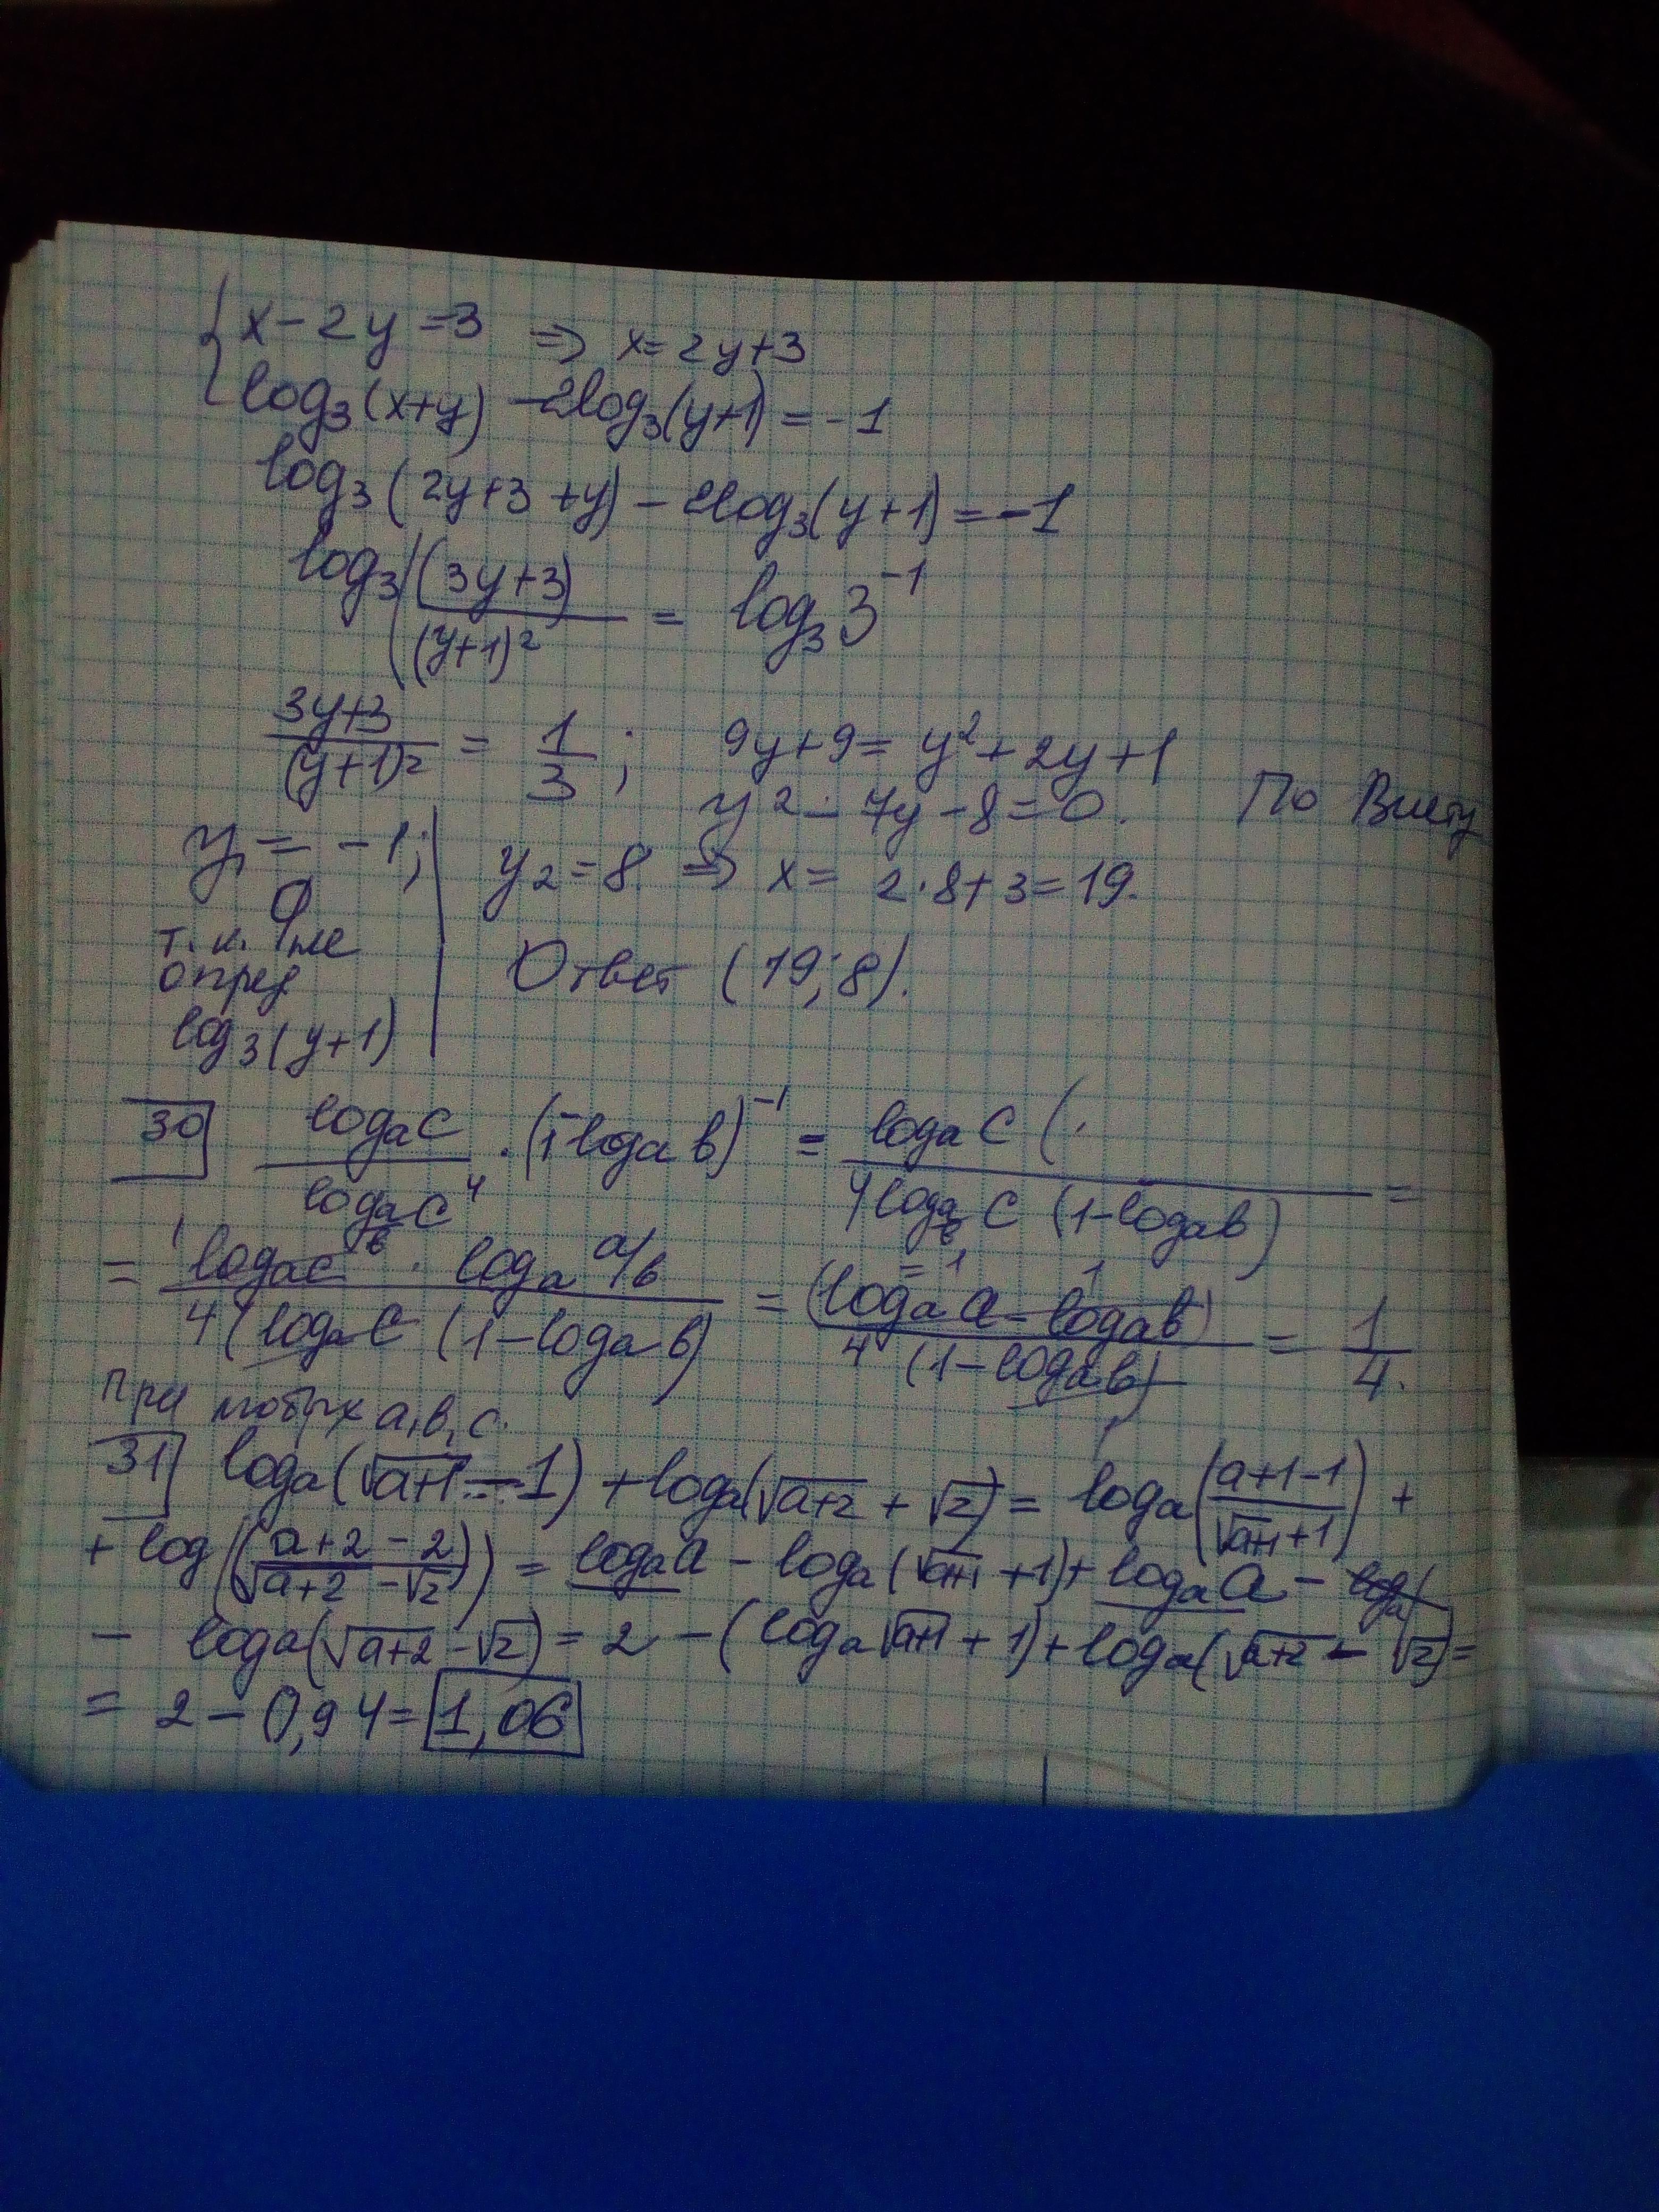 { x-2y=3 => x=2y+3
log₃(x+y) -2log₃(y+1)=-1
log₃(2y+3+y)-2log₃(y+1)=-1
log₃((3y+3)/(y+1)²) = log₃3⁻¹
(3y+3)/(y+1)² = 1/3; 9y+9=y²+2y+1
y²-7y-8=0. По Виету
y₁=-1; | y₂=8 => x= 2·8+3=19.
т.к. не
опред | Ответ (19;8).
log₃(y+1)
30 logₐc/log_{a/b}c⁴ · (1-logₐb)⁻¹ = logₐc (·/4log_{a/b}c (1-logₐb) =
= logₐc · logₐa/b / 4(logₐc (1-logₐb) = (logₐa-logₐb)/4(1-logₐb) = 1/4.
При любых a,b,c.
31 logₐ(√(a+1)-1)+logₐ(√(a+2)+√2)= logₐ((a+1-1)/(√(a+1)+1)) +
+ log((a+2-2)/(√(a+2)-√2)) = logₐa - logₐ(√(a+1)+1)+logₐa -
- logₐ(√(a+2)-√2)=2-(logₐ√(a+1)+1)+logₐ(√(a+2)-√2)=
= 2-0,94=1,06